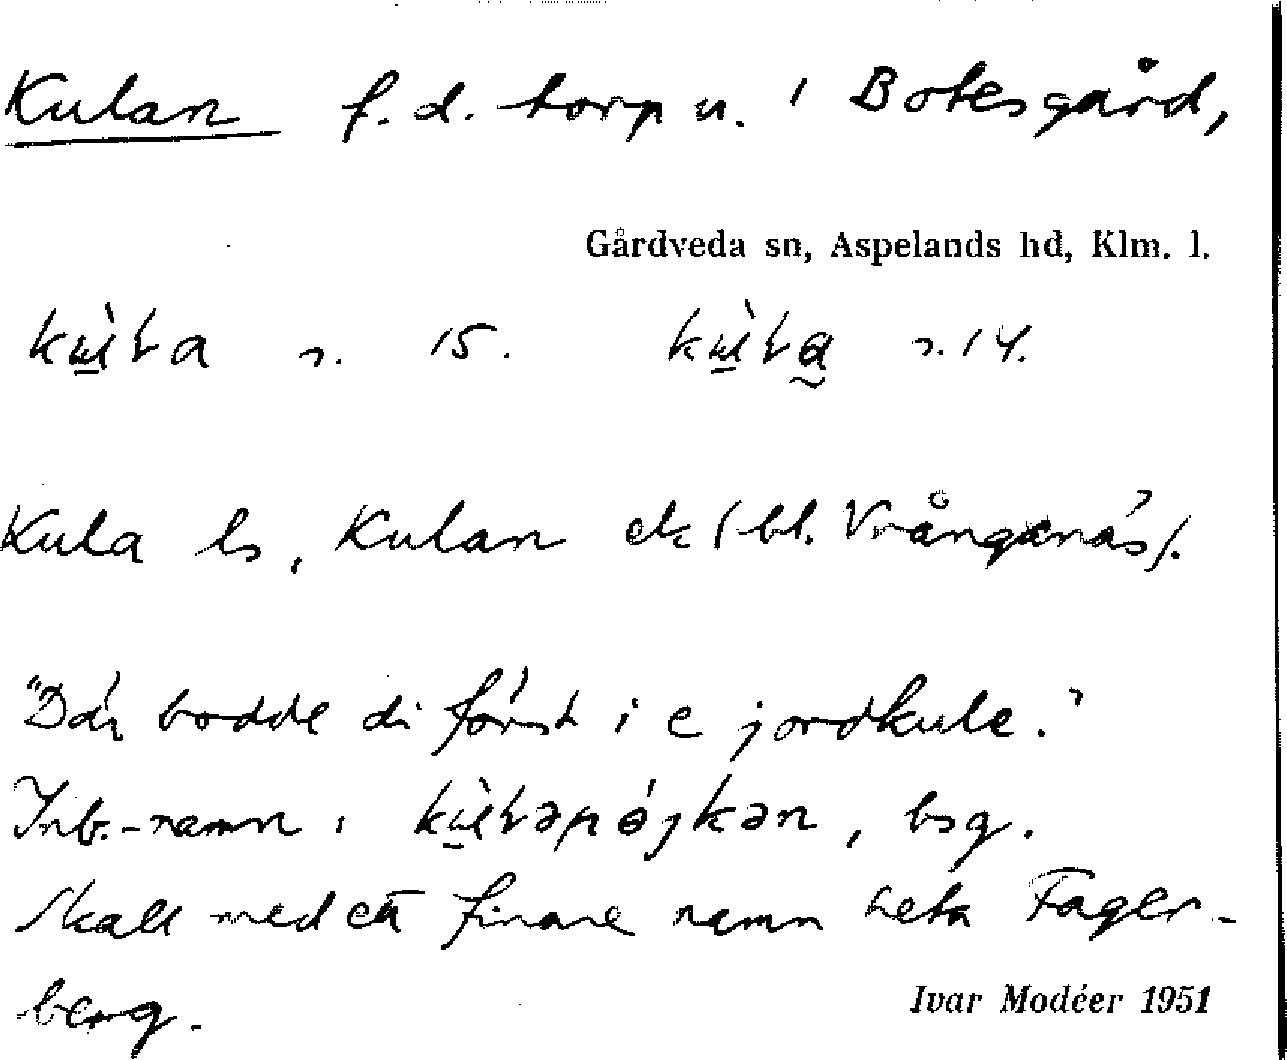 Kulan f.d. torp u. i Botesgård,
Gårdveda sn, Aspelands hd, Klm. l.
s. 15. s. 14.
Kula ls, Kulan ek (bl. Vrånganäs).
"Där bodde di först i e jordkule."
Inb.-namn: bsg.
Skall med ett finare namn heta Fager-
berg.
Ivar Modéer 1951